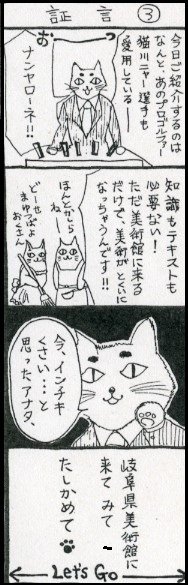 証言 ③
今日ご紹介するのは
なんと、あのプロゴルファー
猫川ニャー選手も
愛用している──
おっ
ナンヤローネ!!!
知識もテキストも
必要ない!
ただ美術館に来る
だけで、美術がとくいに
なっちゃうんです!!
ほんとかしら
ねー
どーせ
まゆつばよ
おくさん
今、インチキ
くさい…と
思ったアナタ、
岐阜県美術館に
来て みて
たしかめて
Let's Go